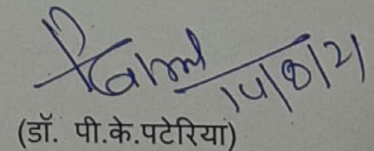 14/8/21
(डॉ. पी.के.पटेरिया)